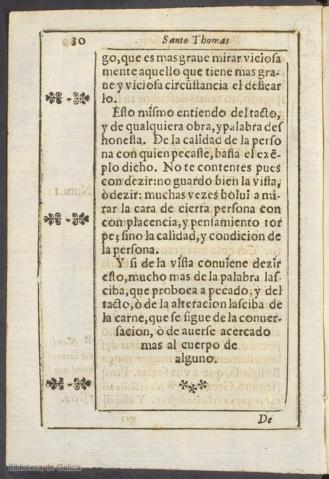 80 Santo Thomas
go, que es mas graue mirar viciosa
mente aquello que tiene mas gra-
ue y viciosa circũstancia el dessear
lo.
Esto mismo entiendo del tacto,
y de qualquiera obra, y palabra des
honesta. De la calidad de la perso
na con quien pecaste, basta el exẽ-
plo dicho. No te contentes pues
con dezir: no guardo bien la vista,
ò dezir: muchas vezes bolui a mi-
rar la cara de cierta persona con
complacencia, y pensamiento tor
pe; sino la calidad, y condicion de
la persona.
Y si de la vista conuiene dezir
esto, mucho mas de la palabra las-
ciba, que proboca a pecado; y del
tacto, ò de la alteracion lasciba de
la carne, que se sigue de la conuer-
sacion, ò de auerse acercado
mas al cuerpo de
alguno.
De
Biblioteca de Galicia